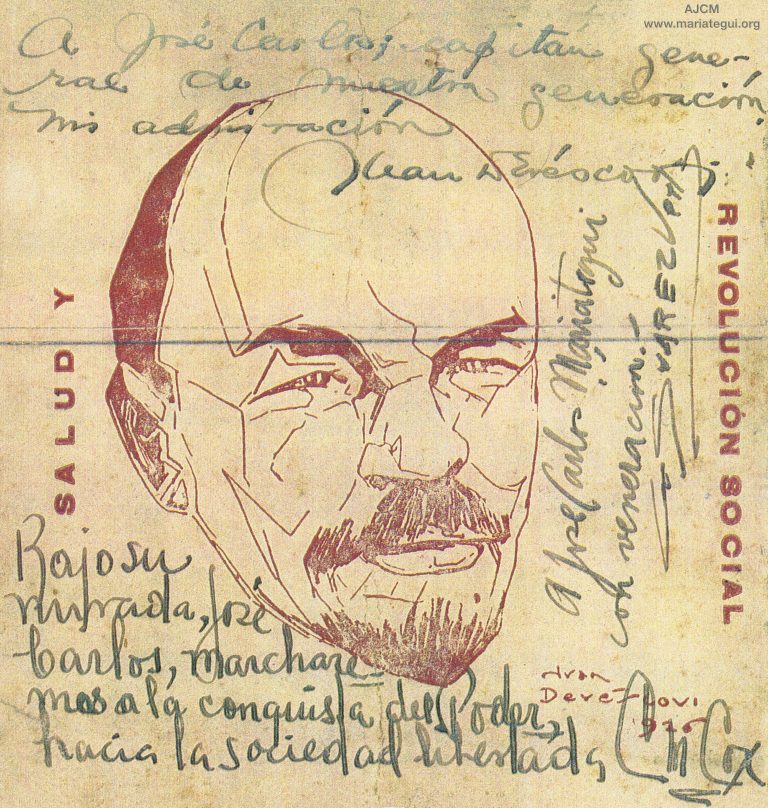 AJCM
www.mariategui.org
A José Carlos; capitán gene-
ral de nuestra generación,
mi admiración
Juan Devéscovi
SALUD Y
REVOLUCIÓN SOCIAL
A José Carlos Mariategui
con veneración.-
Bajo su
mirada, José
Carlos, marchare-
mos a la conquista del Poder,
hacia la sociedad libertada,
CM Cox